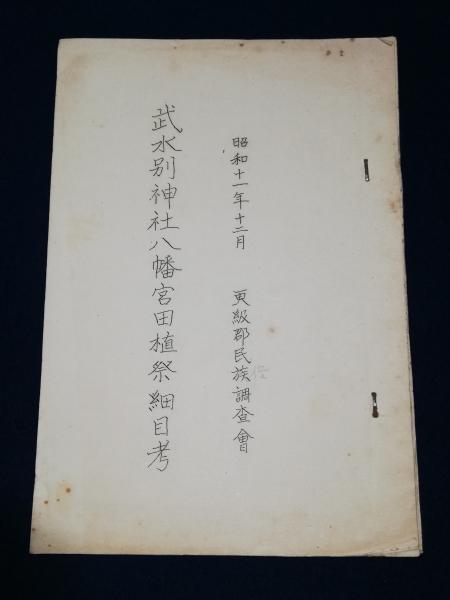 昭和十一年十二月　更級郡民族調査會
武水別神社八幡宮田植祭細目考